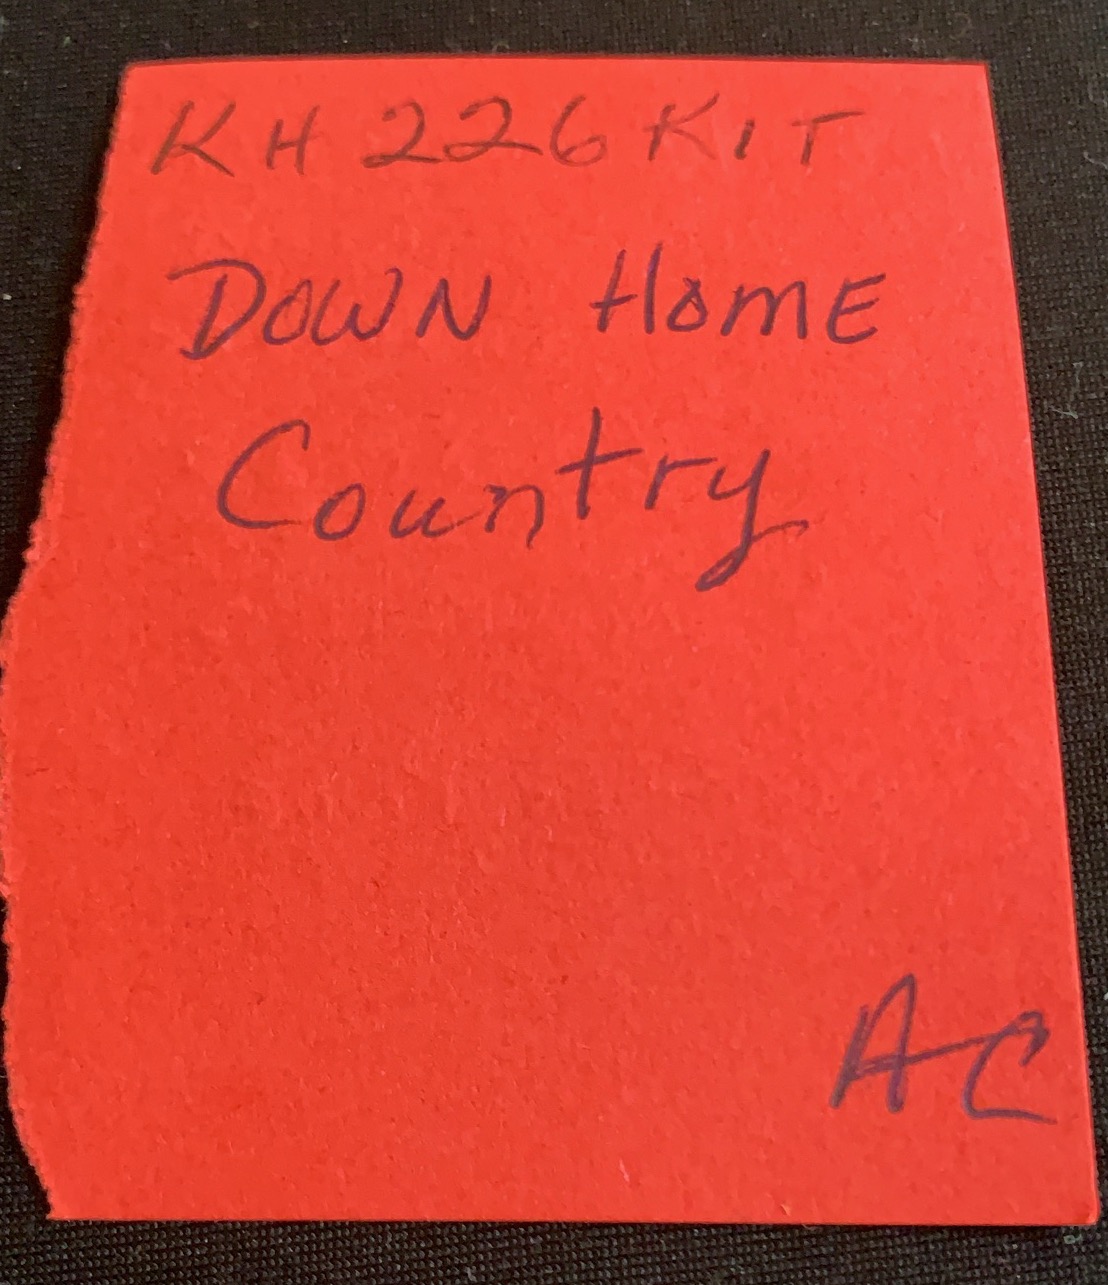 KH 226 KIT
DOWN HOME
Country
AC